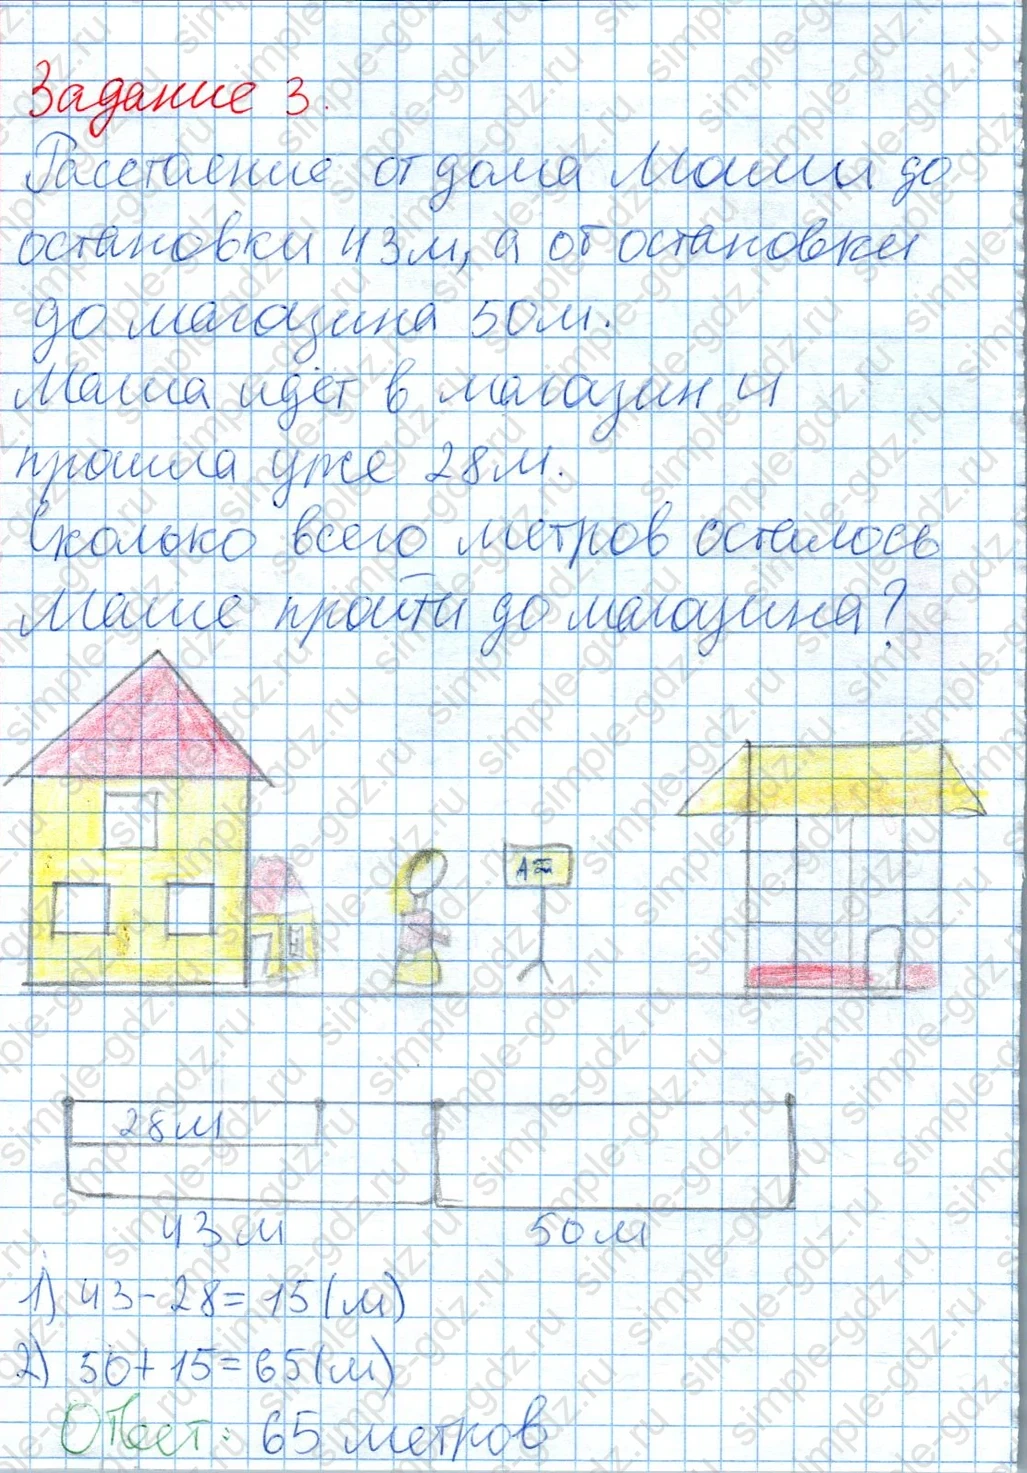 Задание 3.
Расстояние от дома Маши до
остановки 43м, а от остановки
до магазина 50м.
Маша идёт в магазин и
прошла уже 28м.
Сколько всего метров осталось
Маше пройти до магазина?
28м
43м 50м
1) 43-28=15(м)
2) 50+15=65(м)
Ответ: 65 метров
simple-gdz.ru